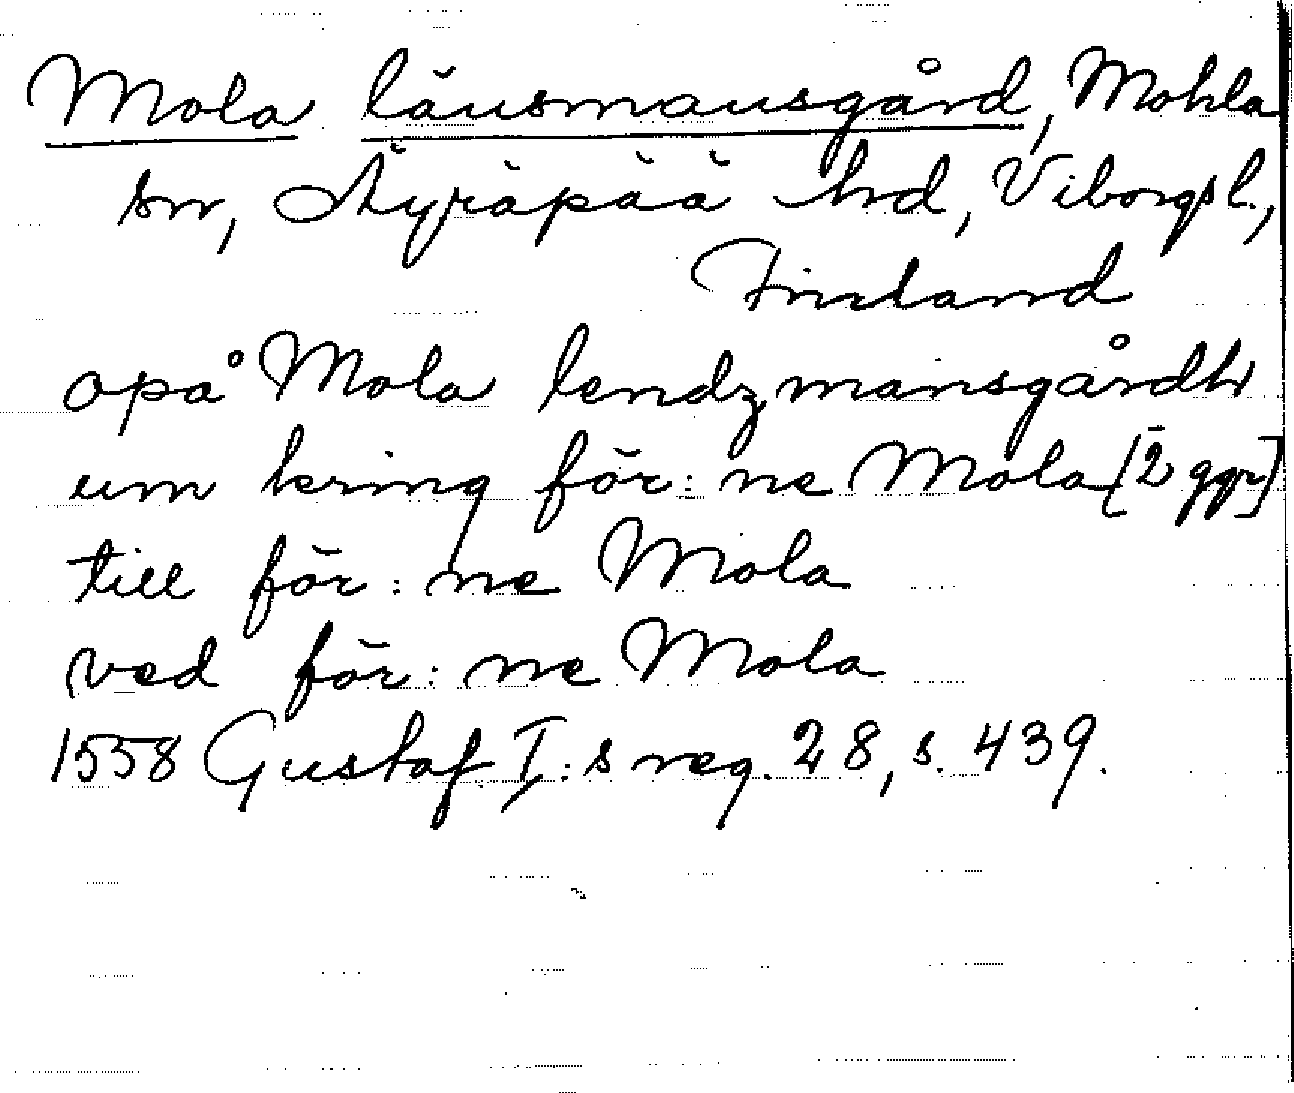 Mola länsmansgård, Mohla
sn, Äyräpää hrd, Viborgs l.,
Finland
opå Mola lendzmansgårdh
um kring för:ne Mola [2 ggr]
till för:ne Mola
ved för:ne Mola
1558 Gustaf I:s reg. 28, s. 439.